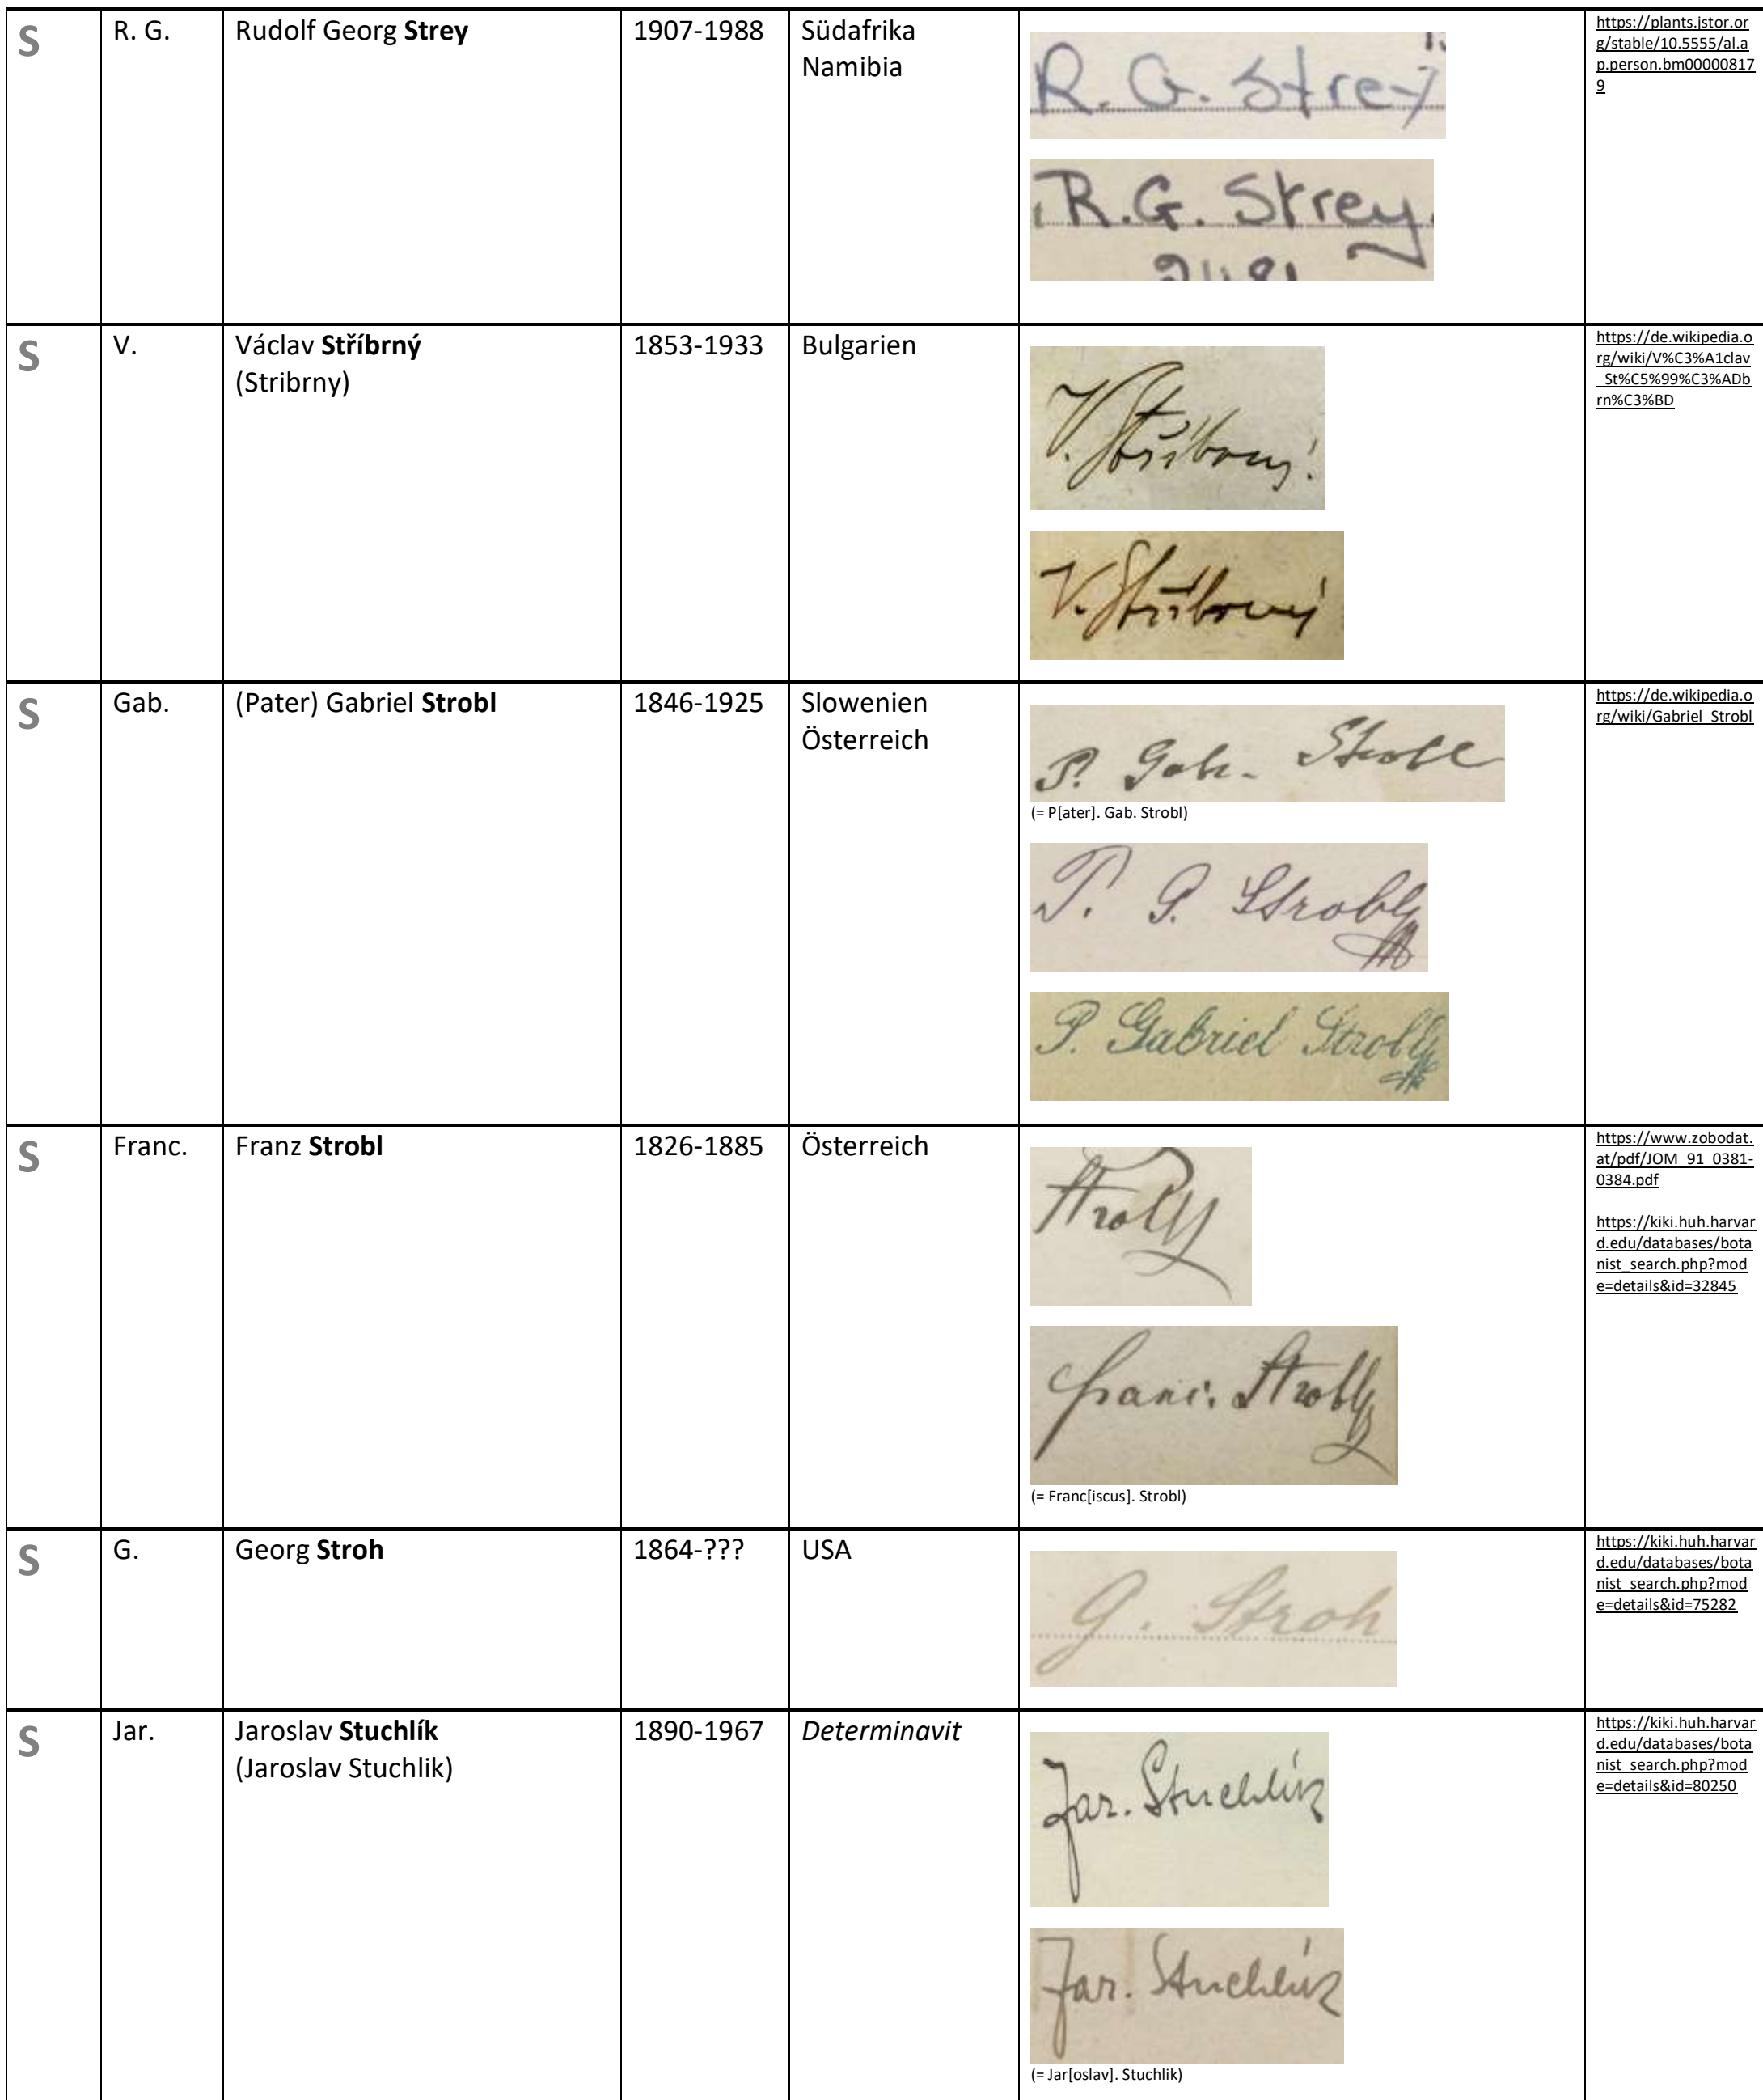 S R. G. Rudolf Georg Strey 1907-1988 Südafrika
Namibia
R. G. Strey
R.G. Strey.
https://plants.jstor.or
g/stable/10.5555/al.a
p.person.bm00000817
9
S V. Václav Stříbrný 1853-1933 Bulgarien
(Stribrny)
V. Stříbrný!
V. Stříbrný
https://de.wikipedia.o
rg/wiki/V%C3%A1clav
_St%C5%99%C3%ADb
rn%C3%BD
S Gab. (Pater) Gabriel Strobl 1846-1925 Slowenien
Österreich
P. Gab. Strobl
(= P[ater]. Gab. Strobl)
P. G. Strobl
P. Gabriel Strobl
https://de.wikipedia.o
rg/wiki/Gabriel_Strobl
S Franc. Franz Strobl 1826-1885 Österreich
Strobl
Franc. Strobl
(= Franc[iscus]. Strobl)
https://www.zobodat.
at/pdf/JOM_91_0381-
0384.pdf
https://kiki.huh.harvar
d.edu/databases/bota
nist_search.php?mod
e=details&id=32845
S G. Georg Stroh 1864-??? USA
G. Stroh
https://kiki.huh.harvar
d.edu/databases/bota
nist_search.php?mod
e=details&id=75282
S Jar. Jaroslav Stuchlík 1890-1967 Determinavit
(Jaroslav Stuchlik)
Jar. Stuchlík
Jar. Stuchlík
(= Jar[oslav]. Stuchlik)
https://kiki.huh.harvar
d.edu/databases/bota
nist_search.php?mod
e=details&id=80250